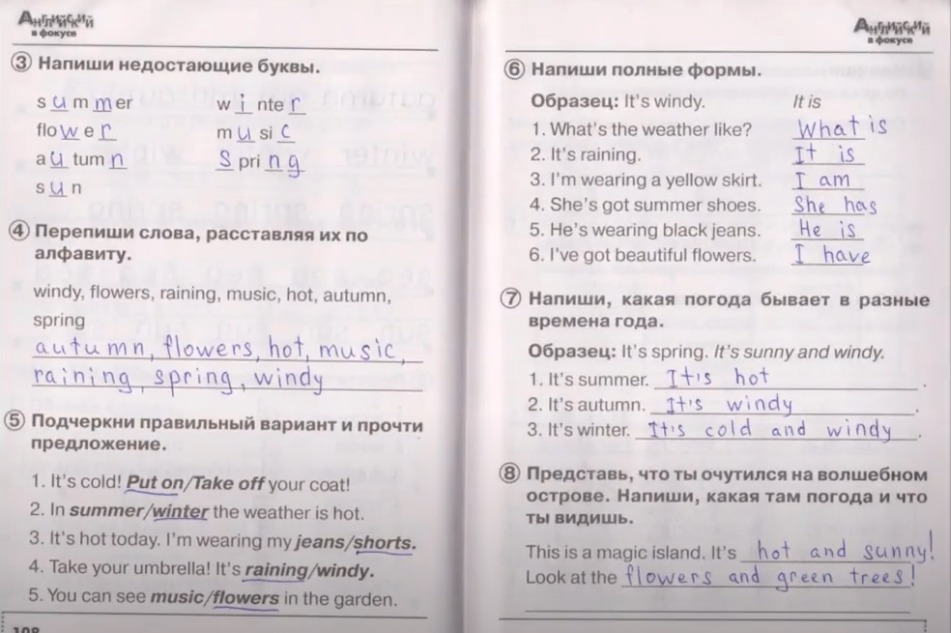 Английский
в фокусе
③ Напиши недостающие буквы.
s u m m er
w i nte r
flo w e r
m u si c
a u tum n
s pri n g
s u n
④ Перепиши слова, расставляя их по
алфавиту.
windy, flowers, raining, music, hot, autumn,
spring
autumn, flowers, hot, music,
raining, spring, windy
⑤ Подчеркни правильный вариант и прочти
предложение.
1. It's cold! Put on/Take off your coat!
2. In summer/winter the weather is hot.
3. It's hot today. I'm wearing my jeans/shorts.
4. Take your umbrella! It's raining/windy.
5. You can see music/flowers in the garden.
108
Английский
в фокусе
⑥ Напиши полные формы.
Образец: It's windy. It is
1. What's the weather like? What is
2. It's raining. It is
3. I'm wearing a yellow skirt. I am
4. She's got summer shoes. She has
5. He's wearing black jeans. He is
6. I've got beautiful flowers. I have
⑦ Напиши, какая погода бывает в разные
времена года.
Образец: It's spring. It's sunny and windy.
1. It's summer. It's hot .
2. It's autumn. It's windy .
3. It's winter. It's cold and windy .
⑧ Представь, что ты очутился на волшебном
острове. Напиши, какая там погода и что
ты видишь.
This is a magic island. It's hot and sunny!
Look at the flowers and green trees!